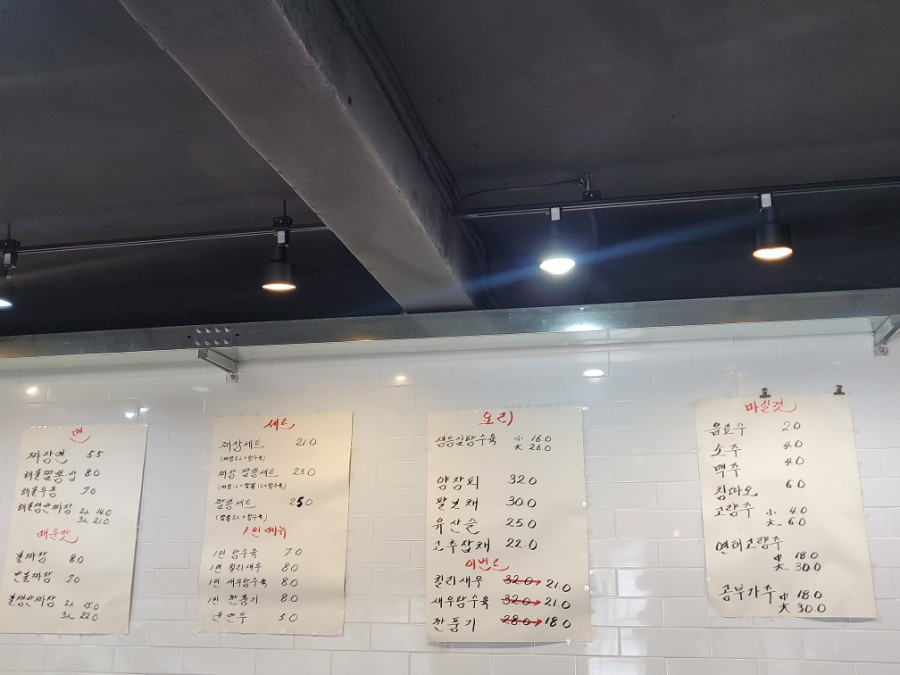 면
짜장면 5.5
해물짬뽕·밥 8.0
해물우동 9.0
해물쟁반짜장 2人 14.0
3人 21.0
매운맛
불짜장 8.0
반불짜장 9.0
불쟁반짜장 2人 15.0
3人 22.0
세트
짜장세트 21.0
(짜장2人+탕수육)
짜장 짬뽕세트 23.0
(짜장1人+짬뽕1人+탕수육)
짬뽕세트 25.0
(짬뽕2人+탕수육)
1인메뉴
1인 탕수육 7.0
1인 칠리새우 8.0
1인 새우탕수육 8.0
1인 깐풍기 8.0
군만두 5.0
요리
생등심탕수육 小 16.0
大 26.0
양장피 32.0
팔보채 30.0
유산슬 25.0
고추잡채 22.0
이벤트
칠리새우 32.0→21.0
새우탕수육 32.0→21.0
깐풍기 28.0→18.0
마실것
음료수 2.0
소주 4.0
맥주 4.0
칭따오 6.0
고량주 小 4.0
大 6.0
연태고량주
中 18.0
大 30.0
공부가주 中 18.0
大 30.0